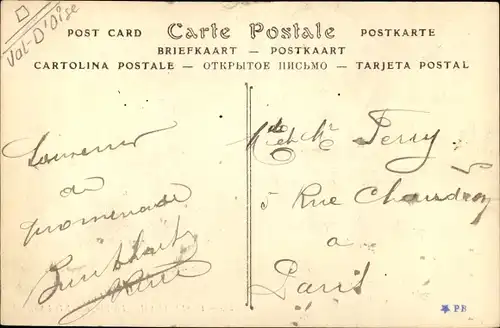 Val-D'Oise
POST CARD Carte Postale POSTKARTE
BRIEFKAART — POSTKAART
CARTOLINA POSTALE — ОТКРЫТОЕ ПИСЬМО — TARJETA POSTAL
Souvenir
de
promenade
Mr et Me Perry
5 Rue
a
Paris
PB